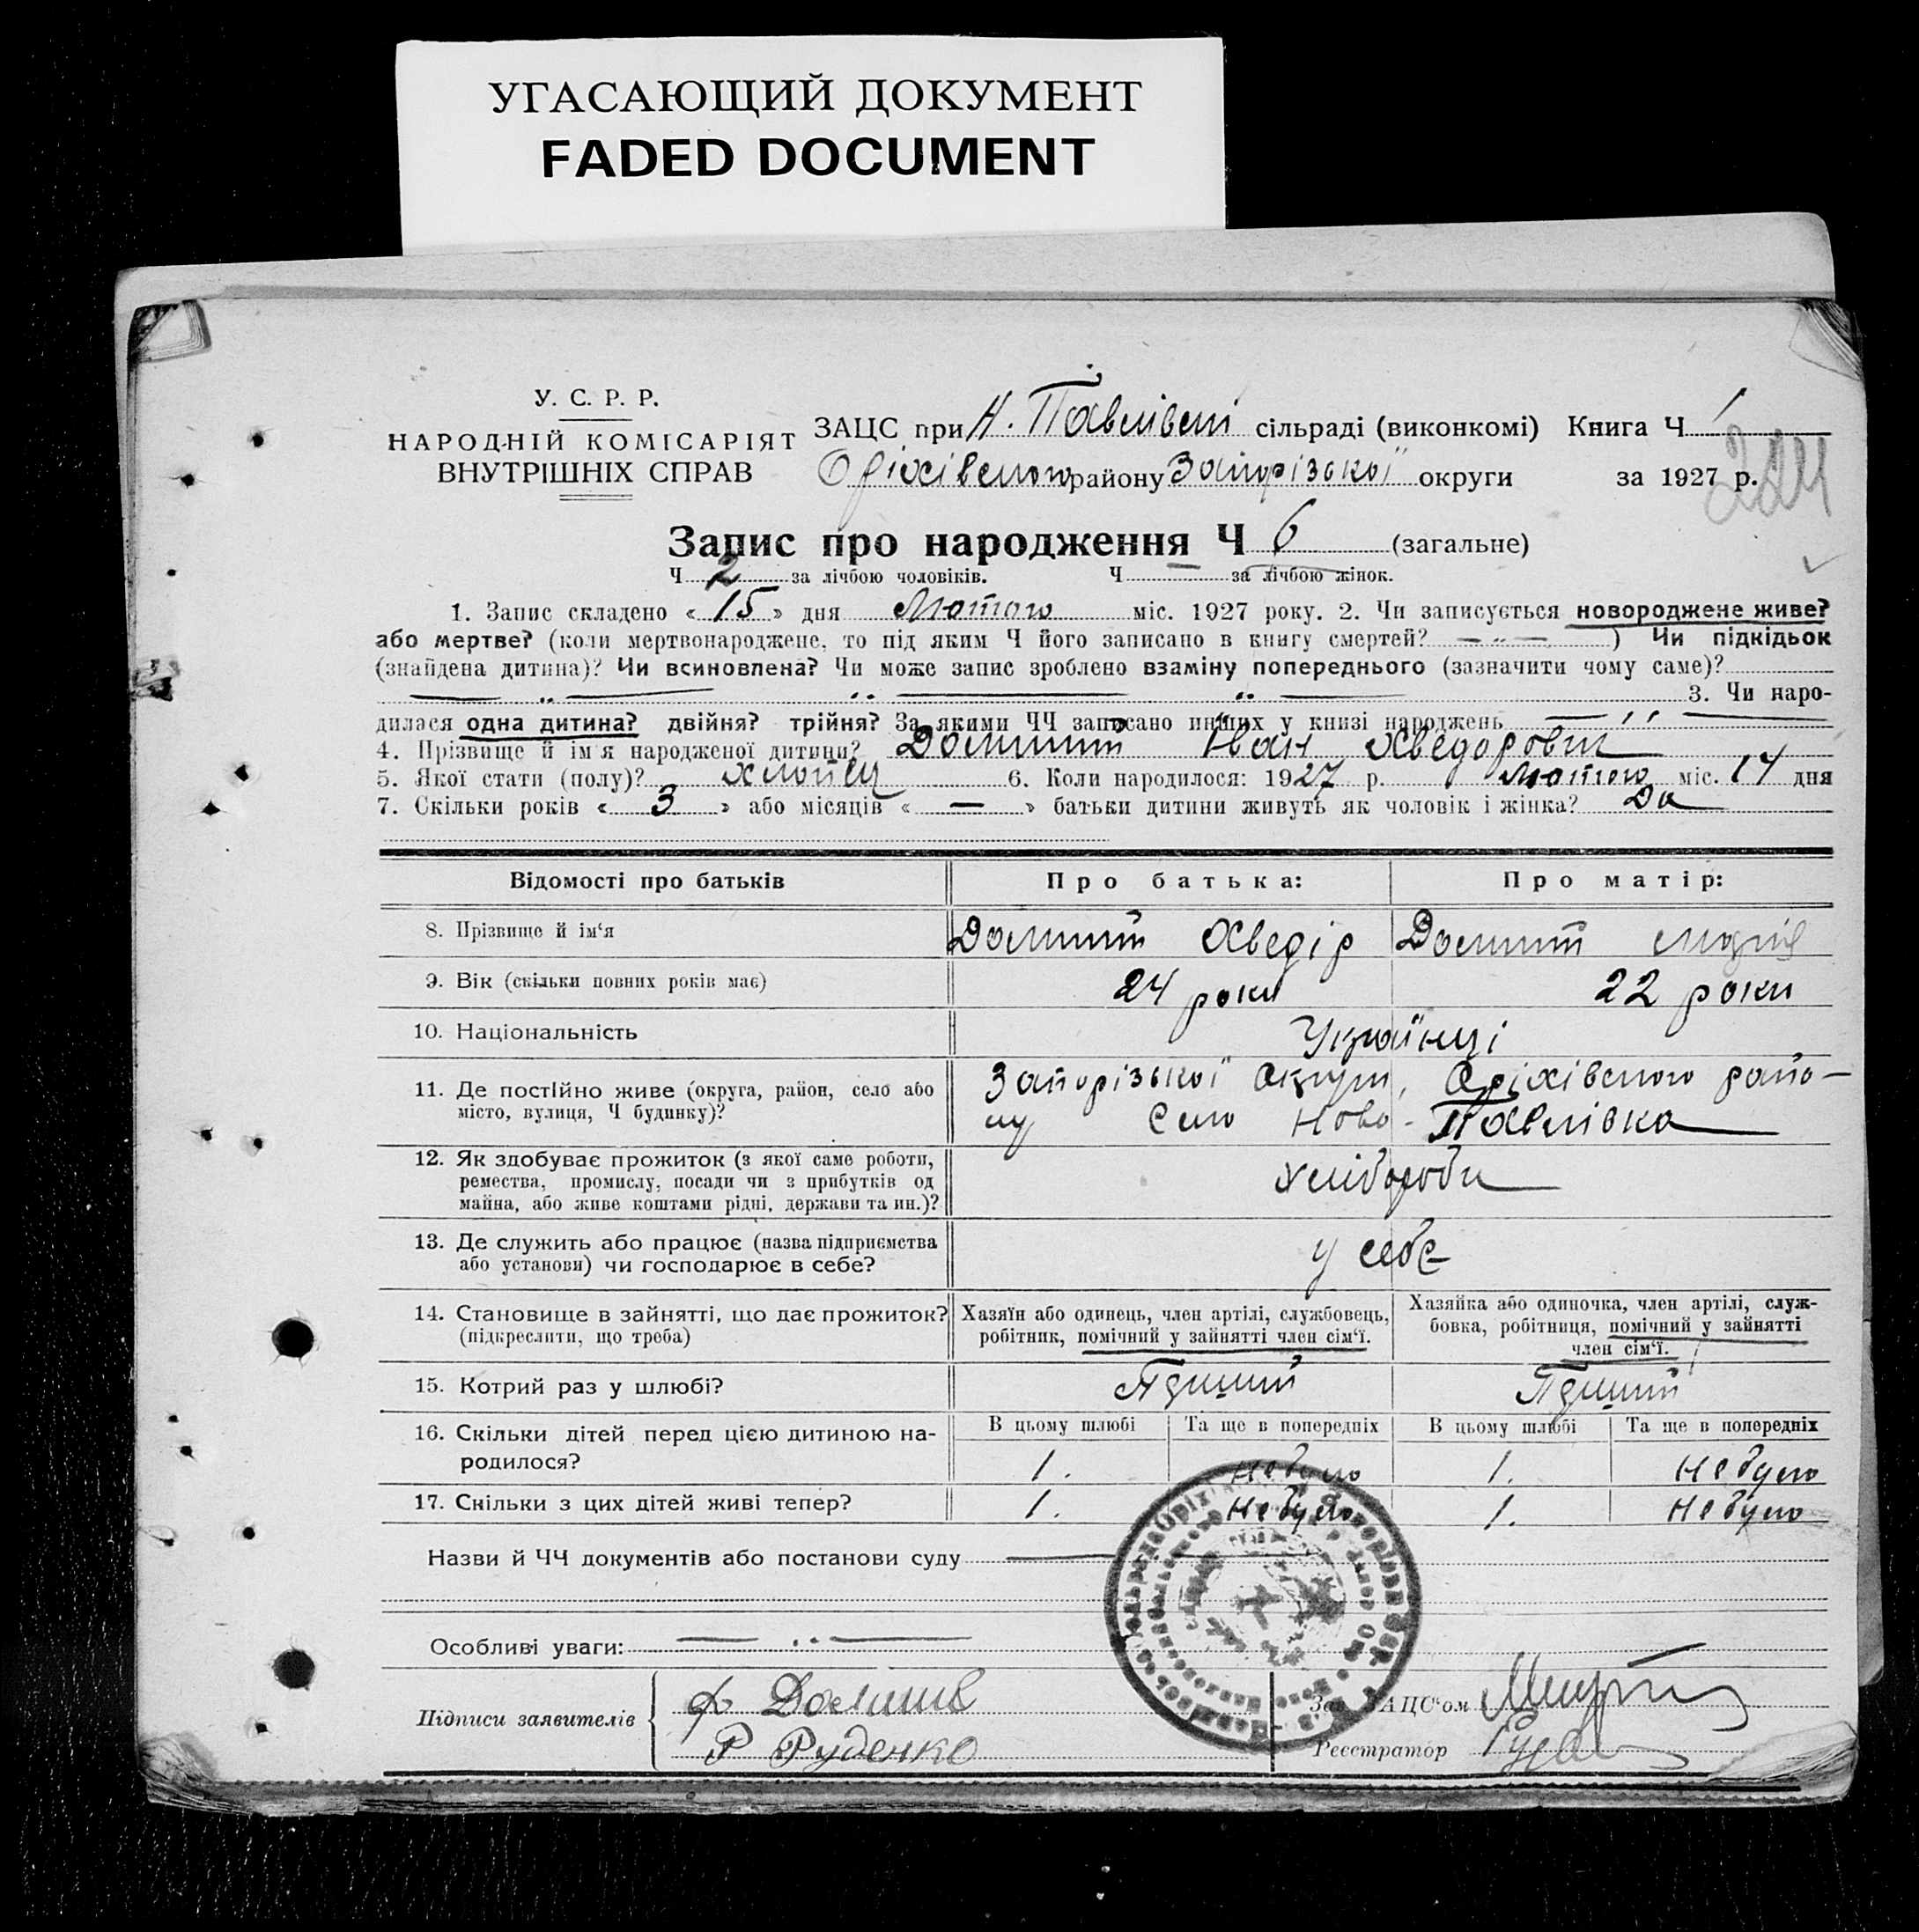 УГАСАЮЩИЙ ДОКУМЕНТ
FADED DOCUMENT
У. С. Р. Р.
НАРОДНІЙ КОМІСАРІЯТ
ВНУТРІШНІХ СПРАВ
ЗАЦС при Н. Павлівській сільраді (виконкомі) Книга Ч 1
Оріхівського району Запорізької округи за 1927 р.
224
Запис про народження Ч 6 (загальне)
Ч 2 за лічбою чоловіків. Ч — за лічбою жінок.
1. Запис складено « 15 » дня Лютого міс. 1927 року. 2. Чи записується новороджене живе?
або мертве? (коли мертвонароджене, то під яким Ч його записано в книгу смертей? — „ — ) Чи підкідьок
(знайдена дитина)? Чи всиновлена? Чи може запис зроблено взаміну попереднього (зазначити чому саме)?
3. Чи наро-
дилася одна дитина? двійня? трійня? За якими ЧЧ записано инших у книзі народжень
4. Прізвище й ім'я народженої дитини? Іван Хведорович
5. Якої стати (полу)? хлопець 6. Коли народилося: 1927 р. Лютого міс. 14 дня
7. Скільки років « 3 » або місяців « — » батьки дитини живуть як чоловік і жінка? Да
Відомості про батьків
Про батька:
Про матір:
8. Прізвище й ім'я
Хведір
Марія
9. Вік (скільки повних років має)
24 роки
22 роки
10. Національність
Українці
11. Де постійно живе (округа, район, село або
місто, вулиця, Ч будинку)?
Запорізької Округи, Оріхівського райо-
ну Село Ново-Павлівка
12. Як здобуває прожиток (з якої саме роботи,
ремества, промислу, посади чи з прибутків од
майна, або живе коштами рідні, держави та ин.)?
Хлібороби
13. Де служить або працює (назва підприємства
або установи) чи господарює в себе?
у себе
14. Становище в зайнятті, що дає прожиток?
(підкреслити, що треба)
Хазяїн або одинець, член артілі, службовець,
робітник, помічний у зайнятті член сім'ї.
Хазяйка або одиночка, член артілі, служ-
бовка, робітниця, помічний у зайнятті
член сім'ї.
15. Котрий раз у шлюбі?
16. Скільки дітей перед цією дитиною на-
родилося?
В цьому шлюбі
Та ще в попередніх
В цьому шлюбі
Та ще в попередніх
1. Не було 1. Не було
17. Скільки з цих дітей живі тепер?
1. Не було 1. Не було
Назви й ЧЧ документів або постанови суду
Особливі уваги:
Підписи заявителів
Р Руденко
Зав. ЗАЦС'ом
Реєстратор